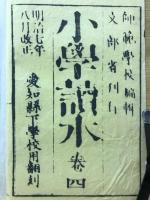 師範學校編輯
文部省刊行
小學讀本 卷四
明治七年
八月改正
愛知縣下學校用翻刻